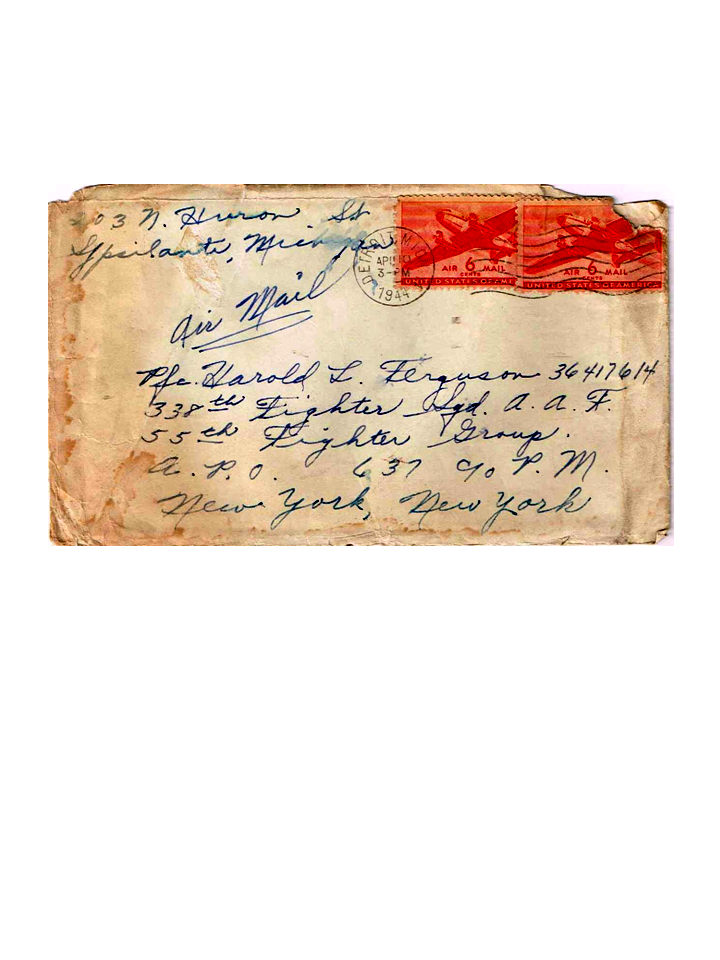 203 N. Huron St
Ypsilanti, Michigan
Air Mail
DETROIT, MICH.
APR 10
3-PM
1944
AIR 6 MAIL
CENTS
UNITED STATES OF AME
AIR 6 MAIL
CENTS
UNITED STATES OF AMERICA
Pfc. Harold L. Ferguson 36417614
338th Fighter Sqd. A. A. F.
55th Fighter Group.
A. P. O. 637 c/o P. M.
New York, New York